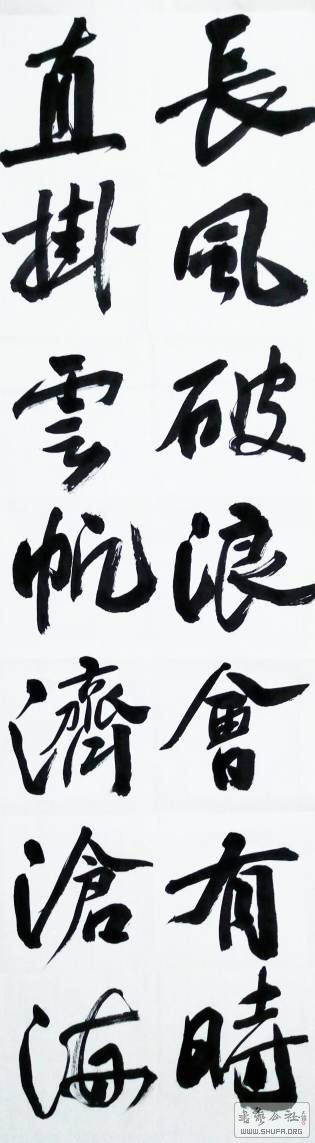 長風破浪會有時
直掛雲帆濟滄海
WWW.SHUFA.ORG